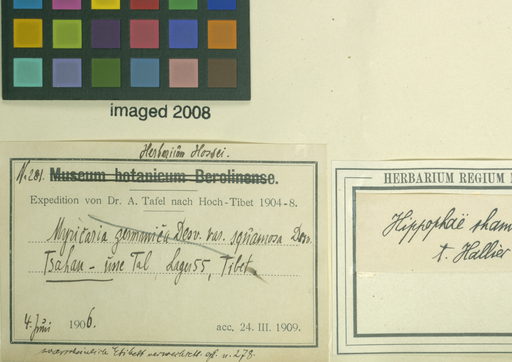 imaged 2008
Herbarium Hossei.
No. 281. Museum botanicum Berolinense.
Expedition von Dr. A. Tafel nach Hoch-Tibet 1904-8.
Myricaria germanica Desv. var. squamosa Desv.
Tsahan - usse Tal, Lager 55, Tibet
4. Juni 1906. acc. 24. III. 1909.
wahrscheinlich Etikett verwechselt. cf. n. 278.
HERBARIUM REGIUM
Hippophaë rham
t. Hallier